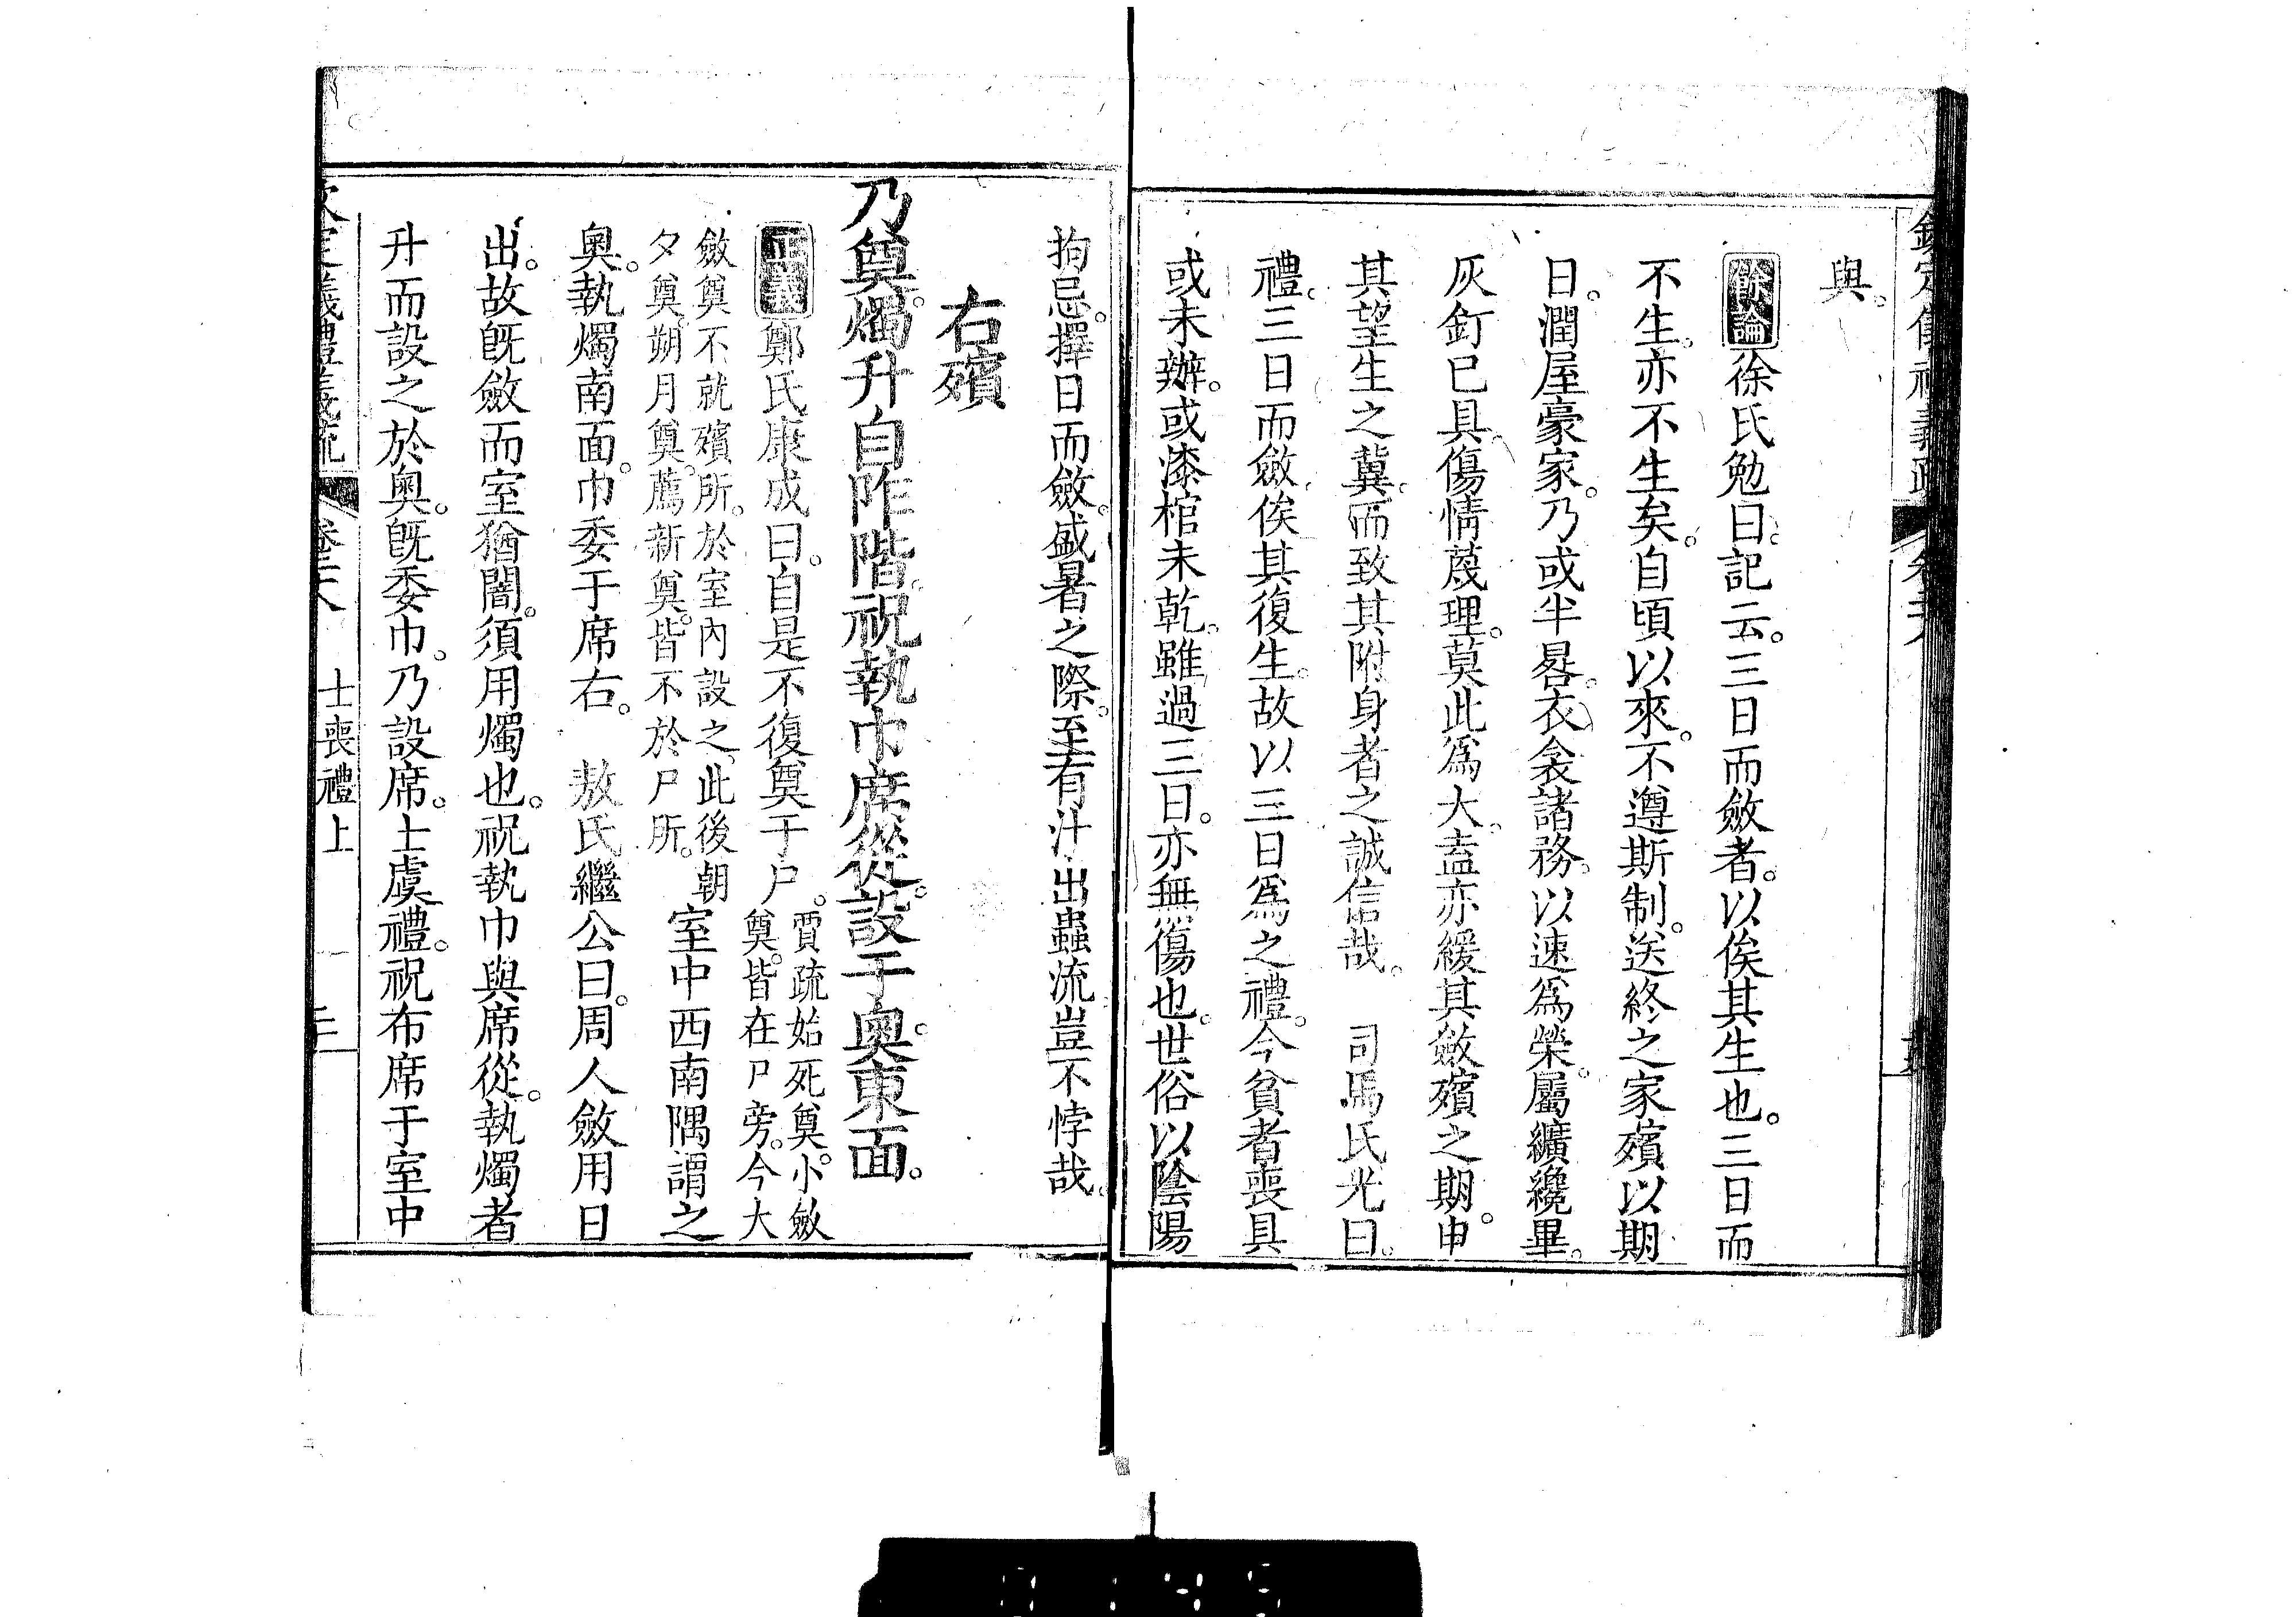 與。
餘論徐氏勉曰。記云。三日而斂者。以俟其生也。三日而
不生。亦不生矣。自頃以來。不遵斯制。送終之家。殯以期
日。潤屋豪家。乃或半晷。衣衾諸務。以速爲榮。屬纊纔畢。
灰釘已具。傷情蔑理。莫此爲大。盍亦緩其斂殯之期。申
其望生之冀。而致其附身者之誠信哉。 司馬氏光曰。
禮。三日而斂。俟其復生。故以三日爲之禮。今貧者喪具
或未辦。或漆棺未乾。雖過三日。亦無傷也。世俗以陰陽
拘忌。擇日而斂。盛暑之際。至有汁出蟲流。豈不悖哉。
右殯
乃奠。燭升自阼階。祝執巾席從。設于奧。東面。
正義鄭氏康成曰。自是不復奠于尸。
賈疏始死奠。小斂
奠。皆在尸旁。今大
斂奠不就殯所。於室內設之。此後朝
夕奠朔月奠。薦新奠。皆不於尸所。
室中西南隅謂之
奧。執燭南面。巾委于席右。 敖氏繼公曰。周人斂用日
出。故旣斂而室猶闇。須用燭也。祝執巾與席從。執燭者
升而設之於奧。旣委巾。乃設席。士虞禮。祝布席于室中
士喪禮上